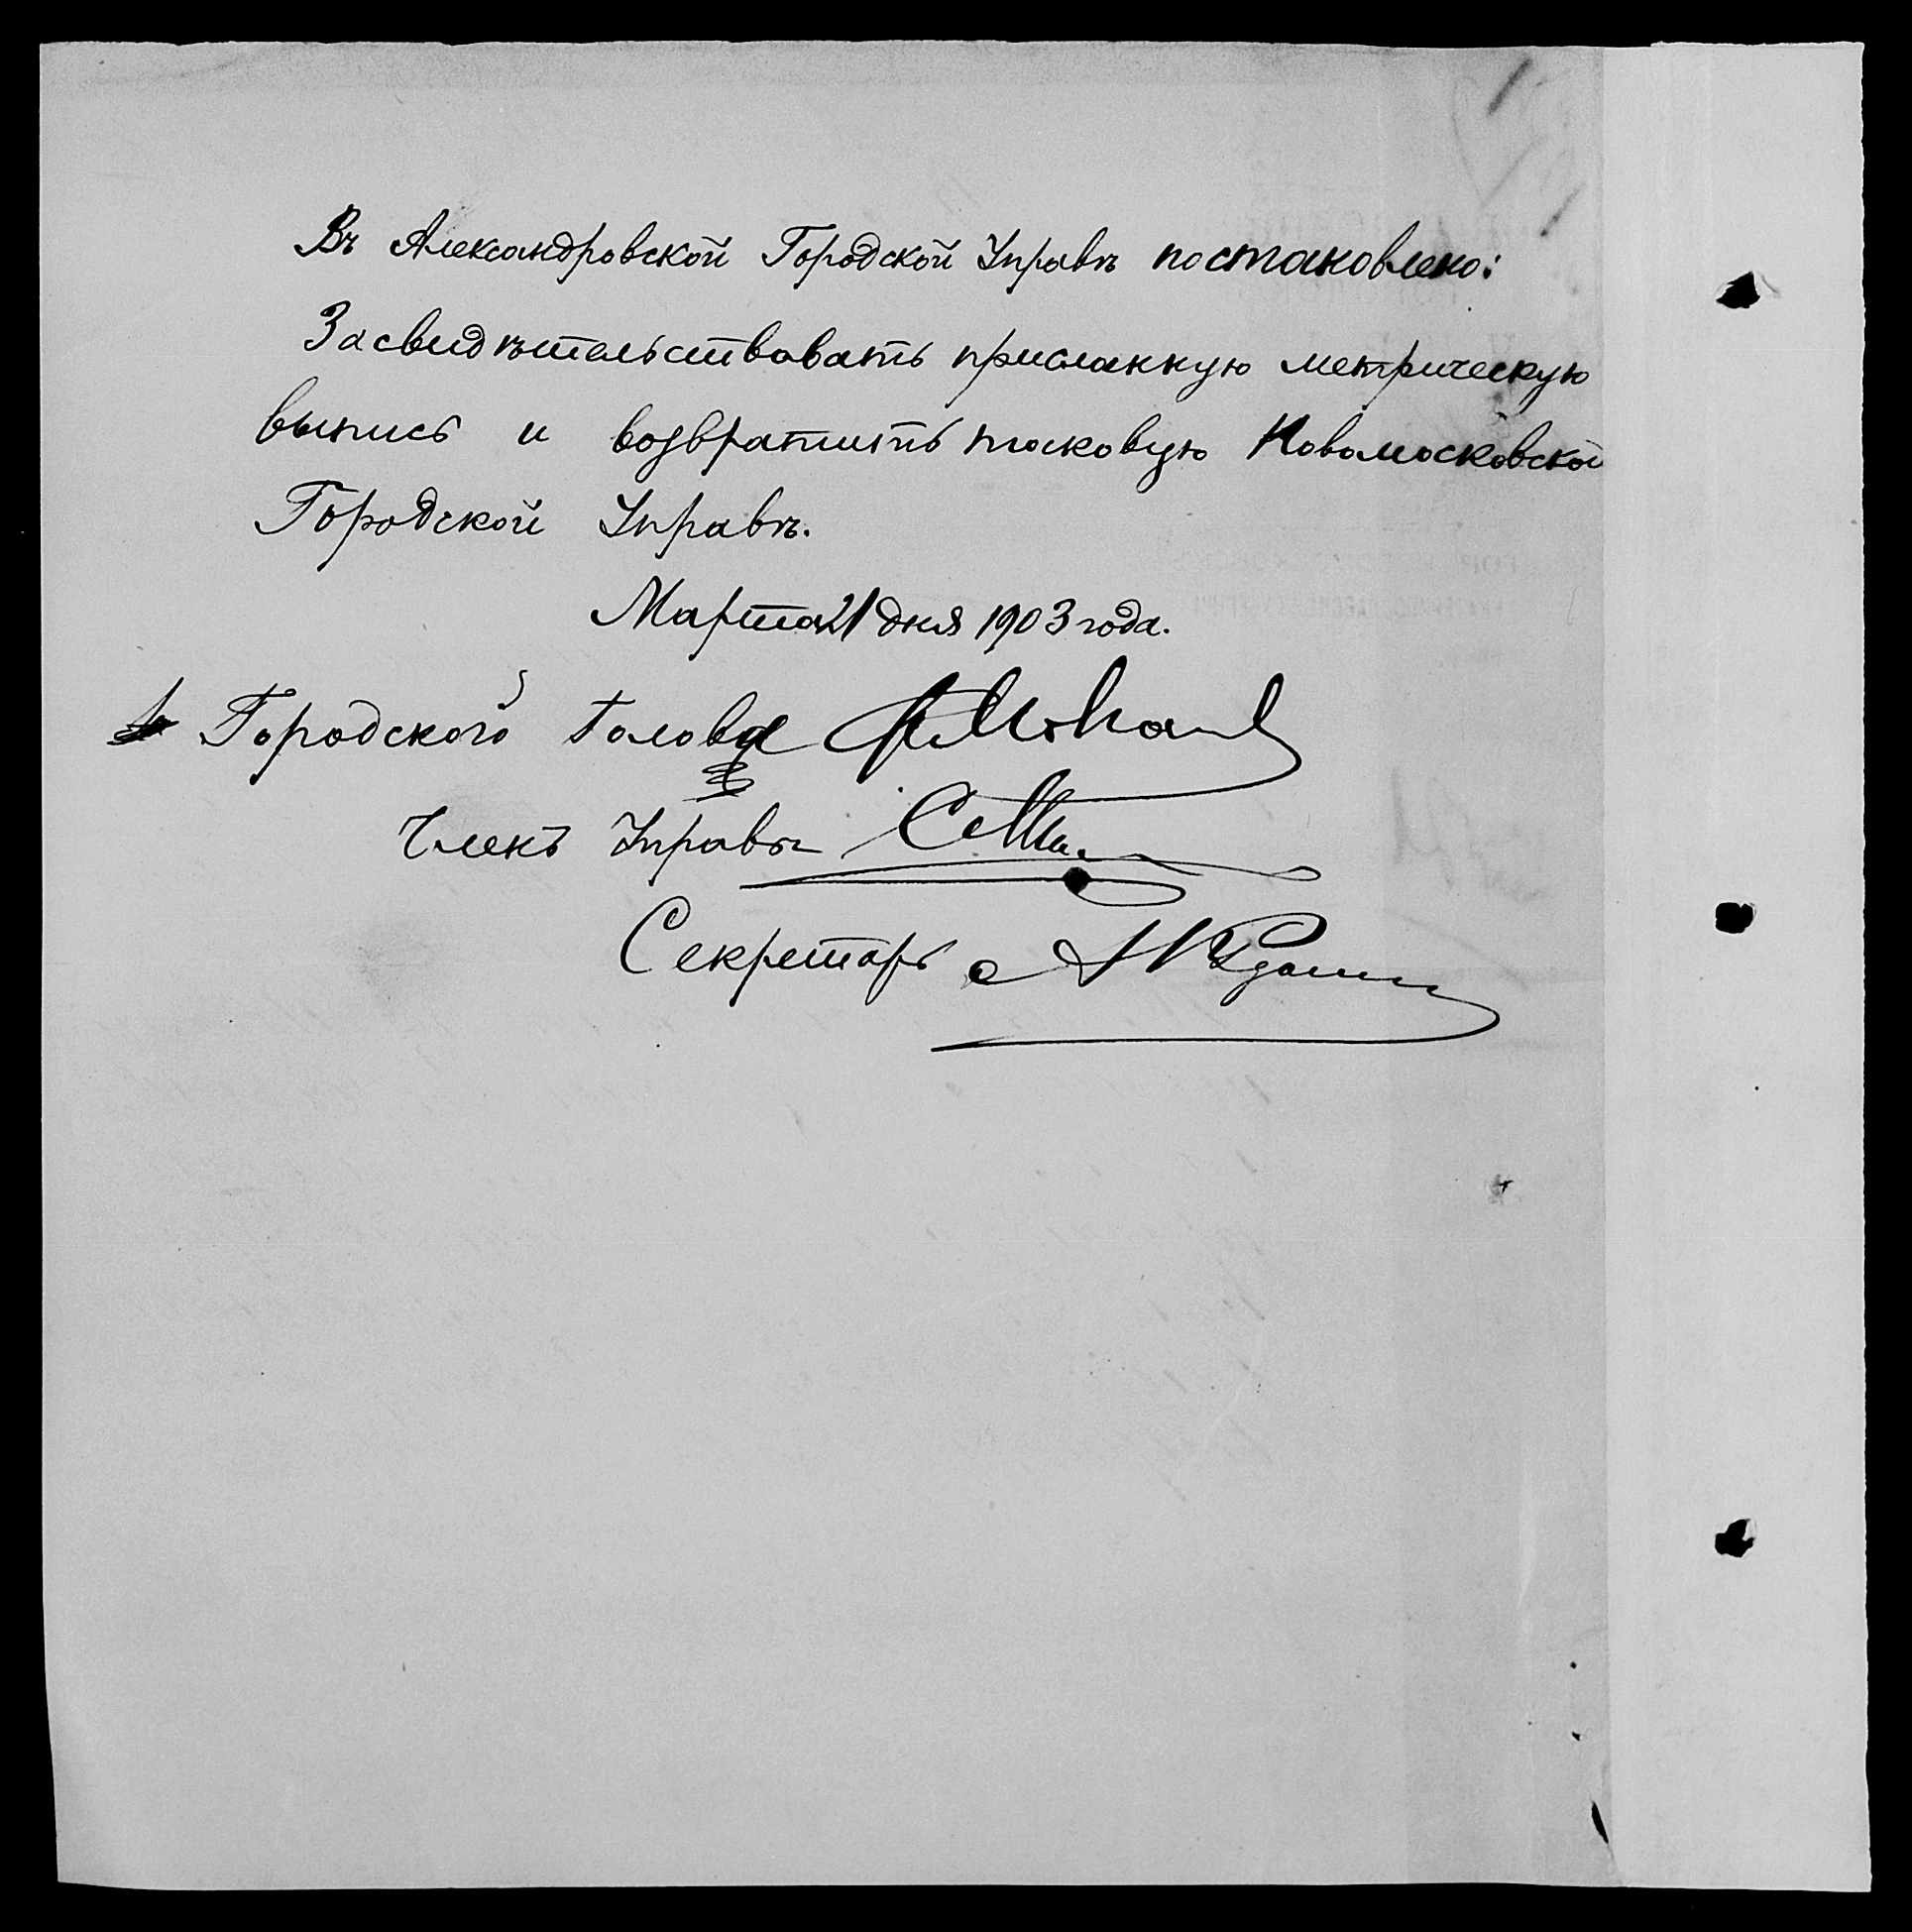 Въ Александровской Городской Управѣ постановлено:
Засвидѣтельствовать присланную метрическую
выпись и возвратить таковую Новомосковской
Городской Управѣ.
Марта 21 дня 1903 года.
Городской Голова
Членъ Управы
Секретарь